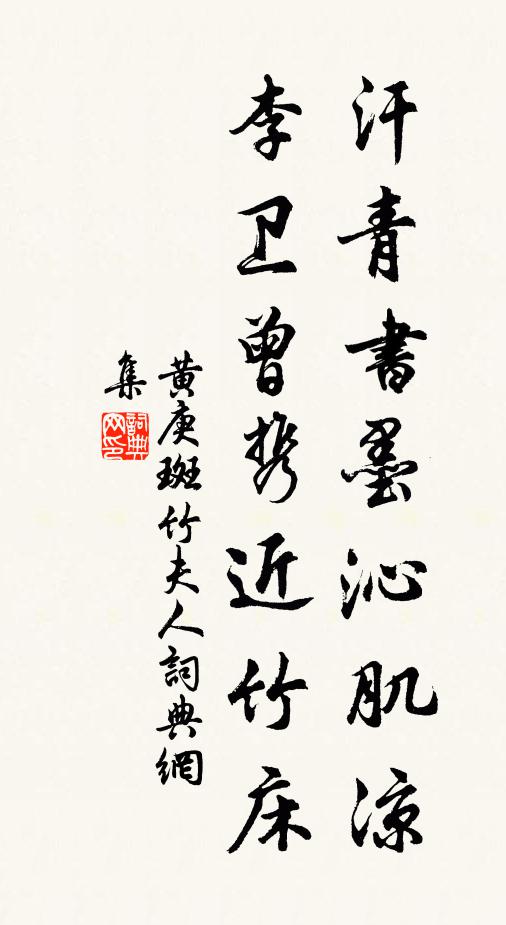 汗青書墨沁肌凉
李卫曾携近竹床
黄庚斑竹夫人詞典網
集
詞典網印